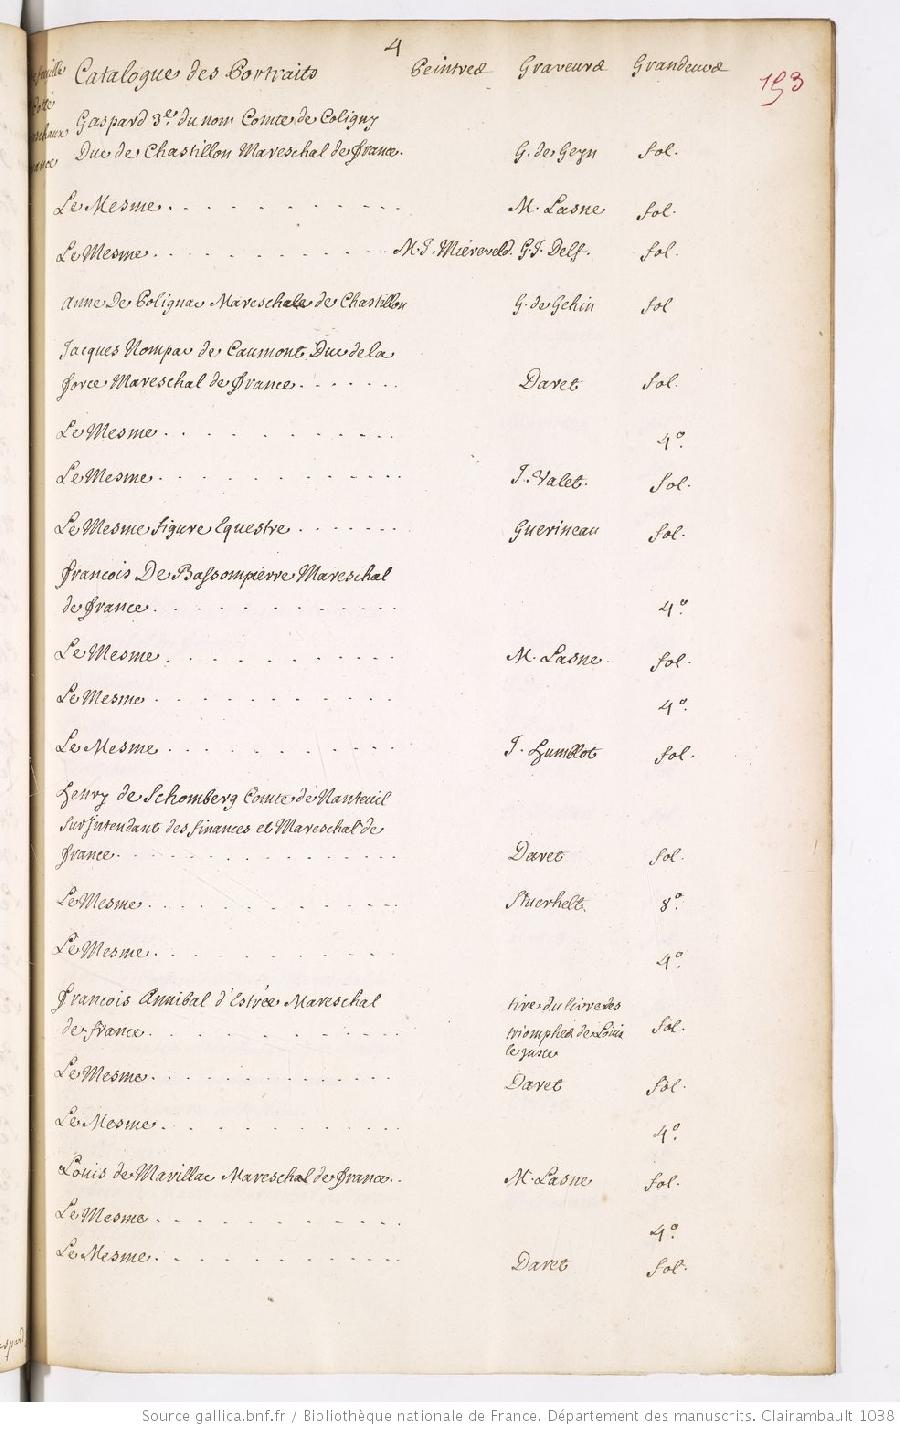 4
193
Catalogue des Portraits Peintres Graveurs Grandeurs
Gaspard 3e. du nom Comte de Coligny
Duc de Chastillon Mareschal de france. G. de Geyn fol.
Le Mesme . . . . . . . . M. Lasne fol.
Le Mesme . . . . . . . . M. J. Miereveld. G. J. Delf. fol.
Anne De Polignac Mareschale de Chastillon G. de Gehin fol
Jacques Nompar de Caumont Duc de la
force Mareschal de france . . . . . . Daret fol.
Le Mesme . . . . . . . . 4º.
Le Mesme . . . . . . . . J. Valet. fol.
Le Mesme figure Equestre . . . . . . Guerineau fol.
francois De Bassompierre Mareschal
de france . . . . . . . . 4º
Le Mesme . . . . . . . . M. Lasne. fol.
Le Mesme . . . . . . . . 4º.
Le Mesme . . . . . . . . J. Humblot fol.
Henry de Schomberg Comte de Nanteuil
Surjntendant des finances et Mareschal de
france . . . . . . . . Daret fol.
Le Mesme . . . . . . . . Stuerhelt. 8º.
Le Mesme . . . . . . . . 4º.
francois Annibal d'Estrée Mareschal tire du livre des
de france . . . . . . . . triomphes de Louis fol.
le juste
Le Mesme . . . . . . . . Daret fol.
Le Mesme . . . . . . . . 4º.
Louis de Marillac Mareschal de france . . M. Lasne fol.
Le Mesme . . . . . . . . 4º
Le Mesme . . . . . . . . Daret fol.
Source gallica.bnf.fr / Bibliothèque nationale de France. Département des manuscrits. Clairambault 1038